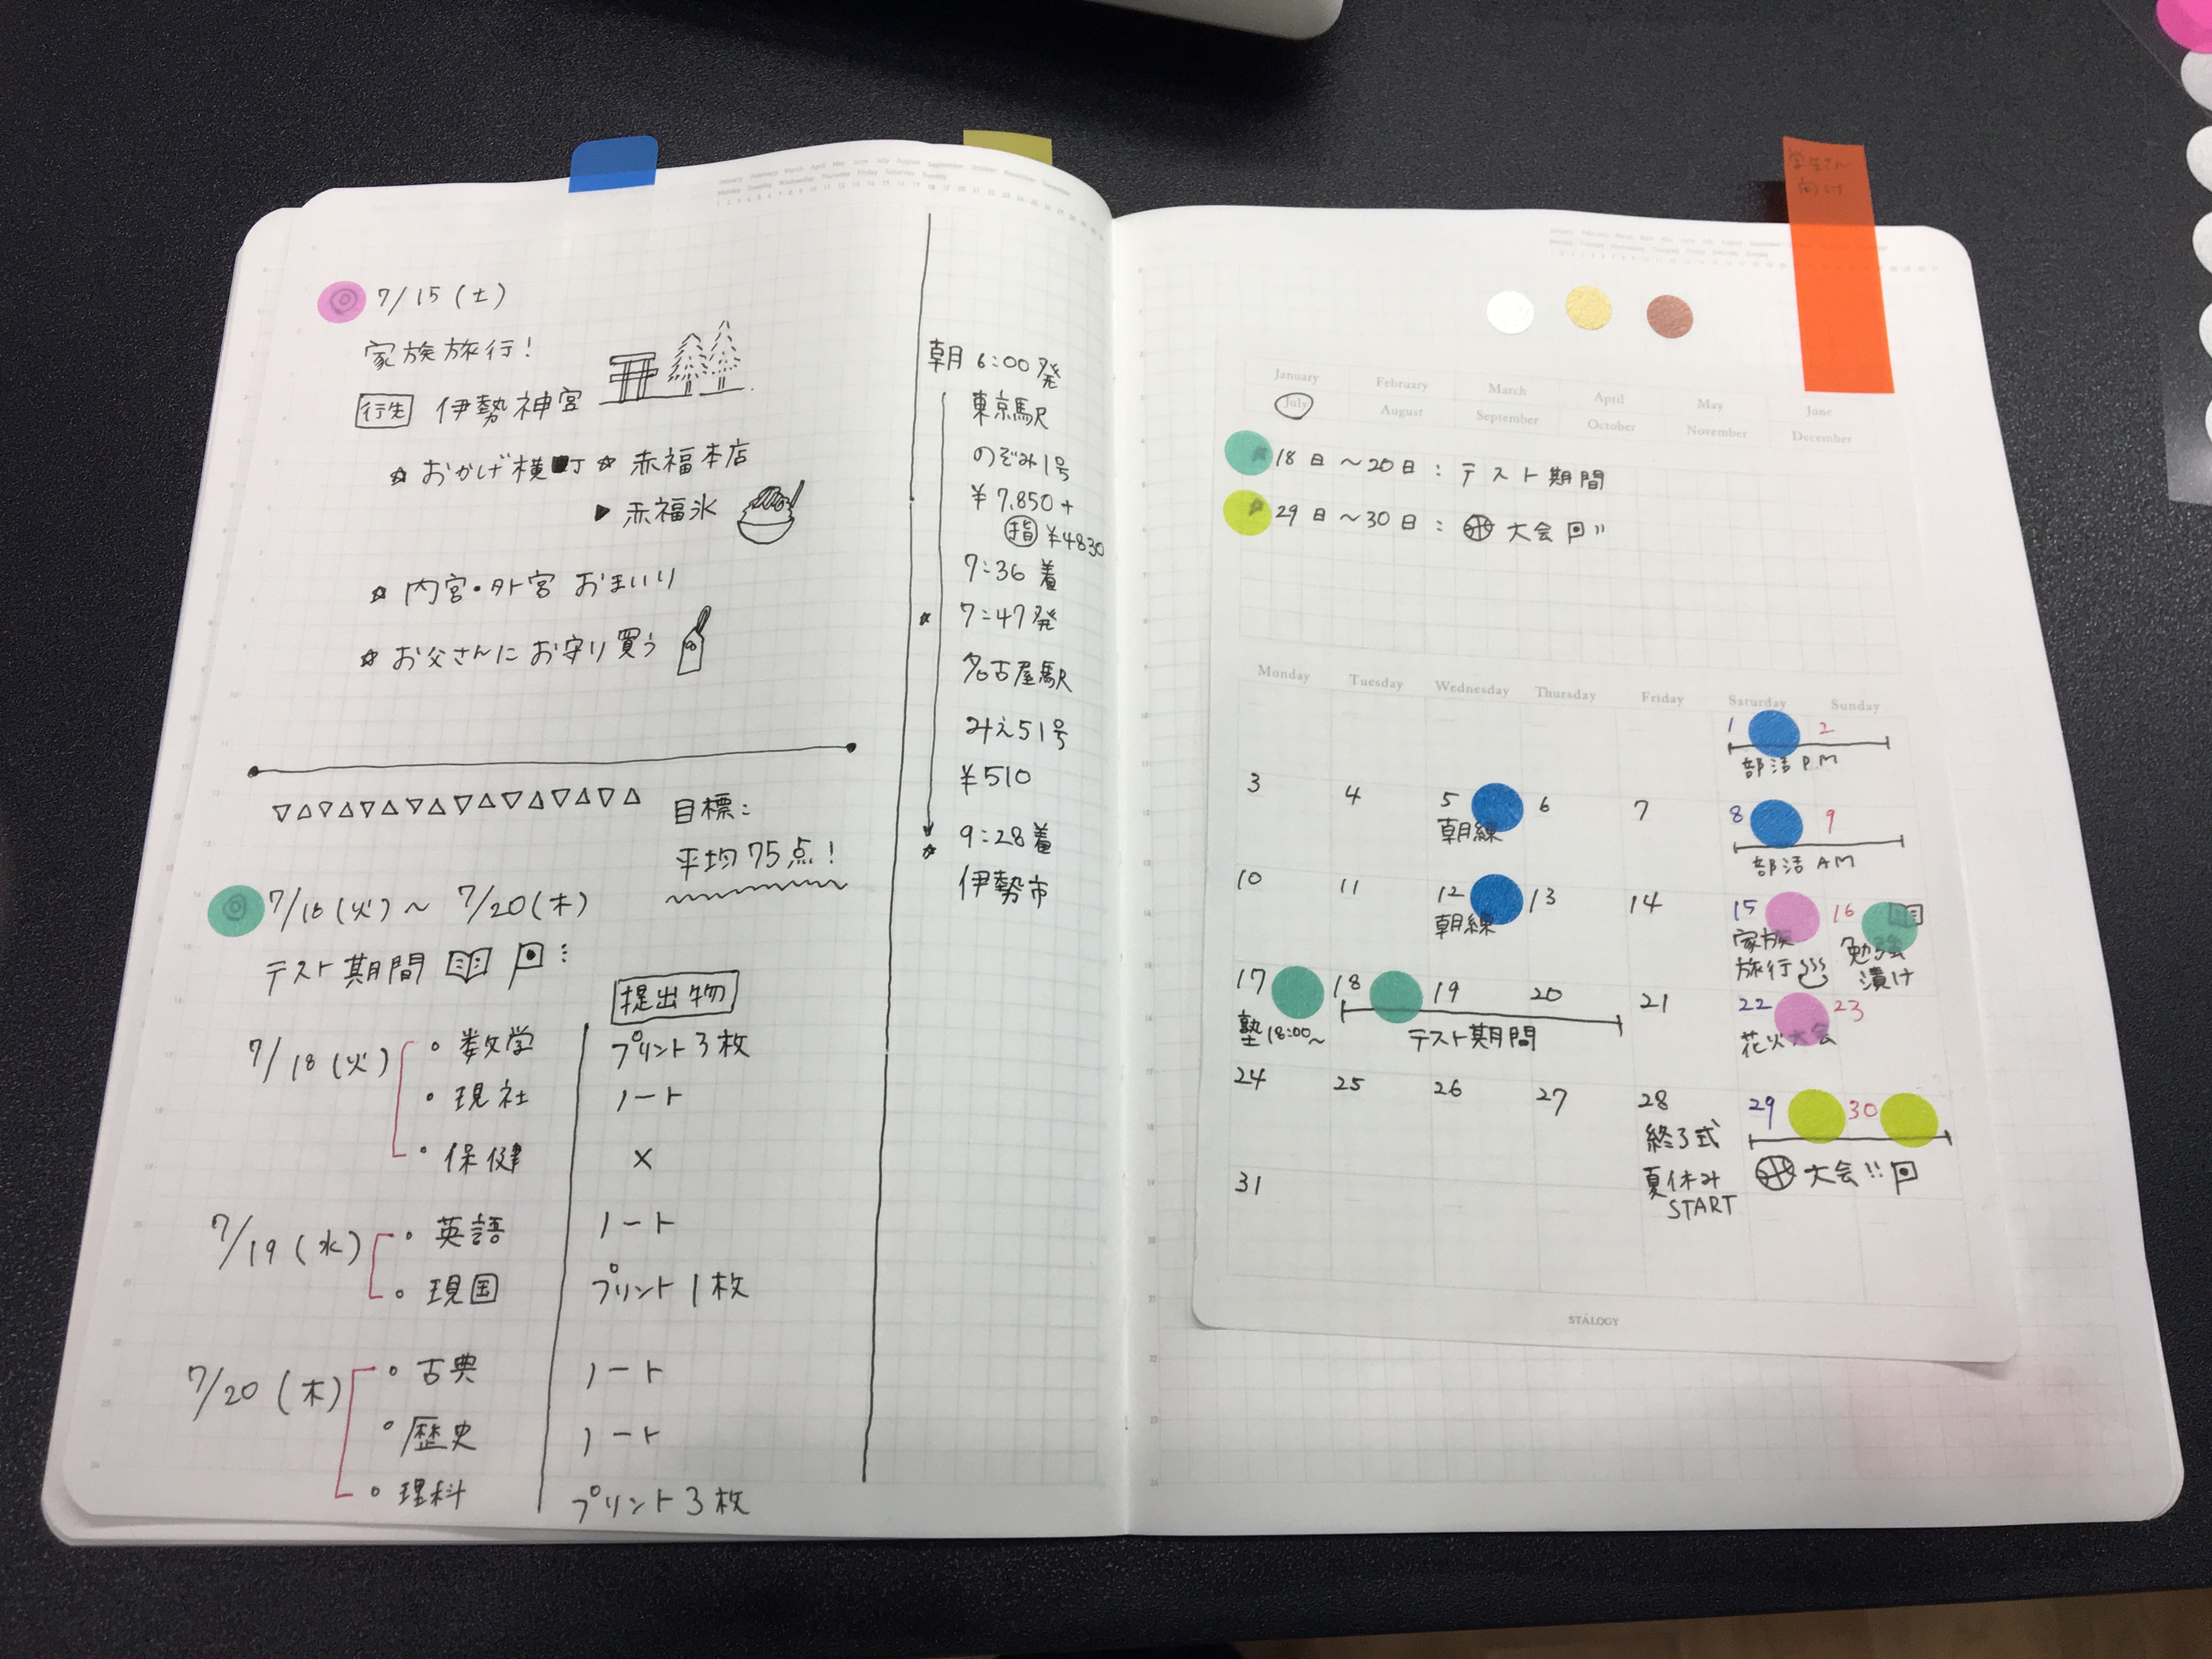 7/15(土)
家族旅行!
行先 伊勢神宮
☆おかげ横町 ☆赤福本店
▶赤福氷
☆内宮・外宮 おまいり
☆お父さんにお守り買う
目標:
平均75点!
7/18(火)〜7/20(木)
テスト期間
提出物
7/18(火) 数学 プリント3枚
・現社 ノート
・保健 ×
7/19(水) 英語 ノート
現国 プリント1枚
7/20(木) 古典 ノート
歴史 ノート
理科 プリント3枚
朝6:00発
東京駅
のぞみ1号
¥7,850+
指 ¥4830
7:36着
☆7:47発
名古屋駅
みえ51号
¥510
☆9:28着
伊勢市
学生さん
向け
January February March April May June
July August September October November December
18日〜20日:テスト期間
29日〜30日:大会
Monday Tuesday Wednesday Thursday Friday Saturday Sunday
1 2
部活PM
3 4 5 6 7 8 9
朝練 部活AM
10 11 12 13 14 15 16
朝練 家族 勉強
旅行 漬け
17 18 19 20 21 22 23
塾18:00〜 テスト期間 花火大会
24 25 26 27 28 29 30
終了式 大会!!
夏休み
START
31
STÁLOGY